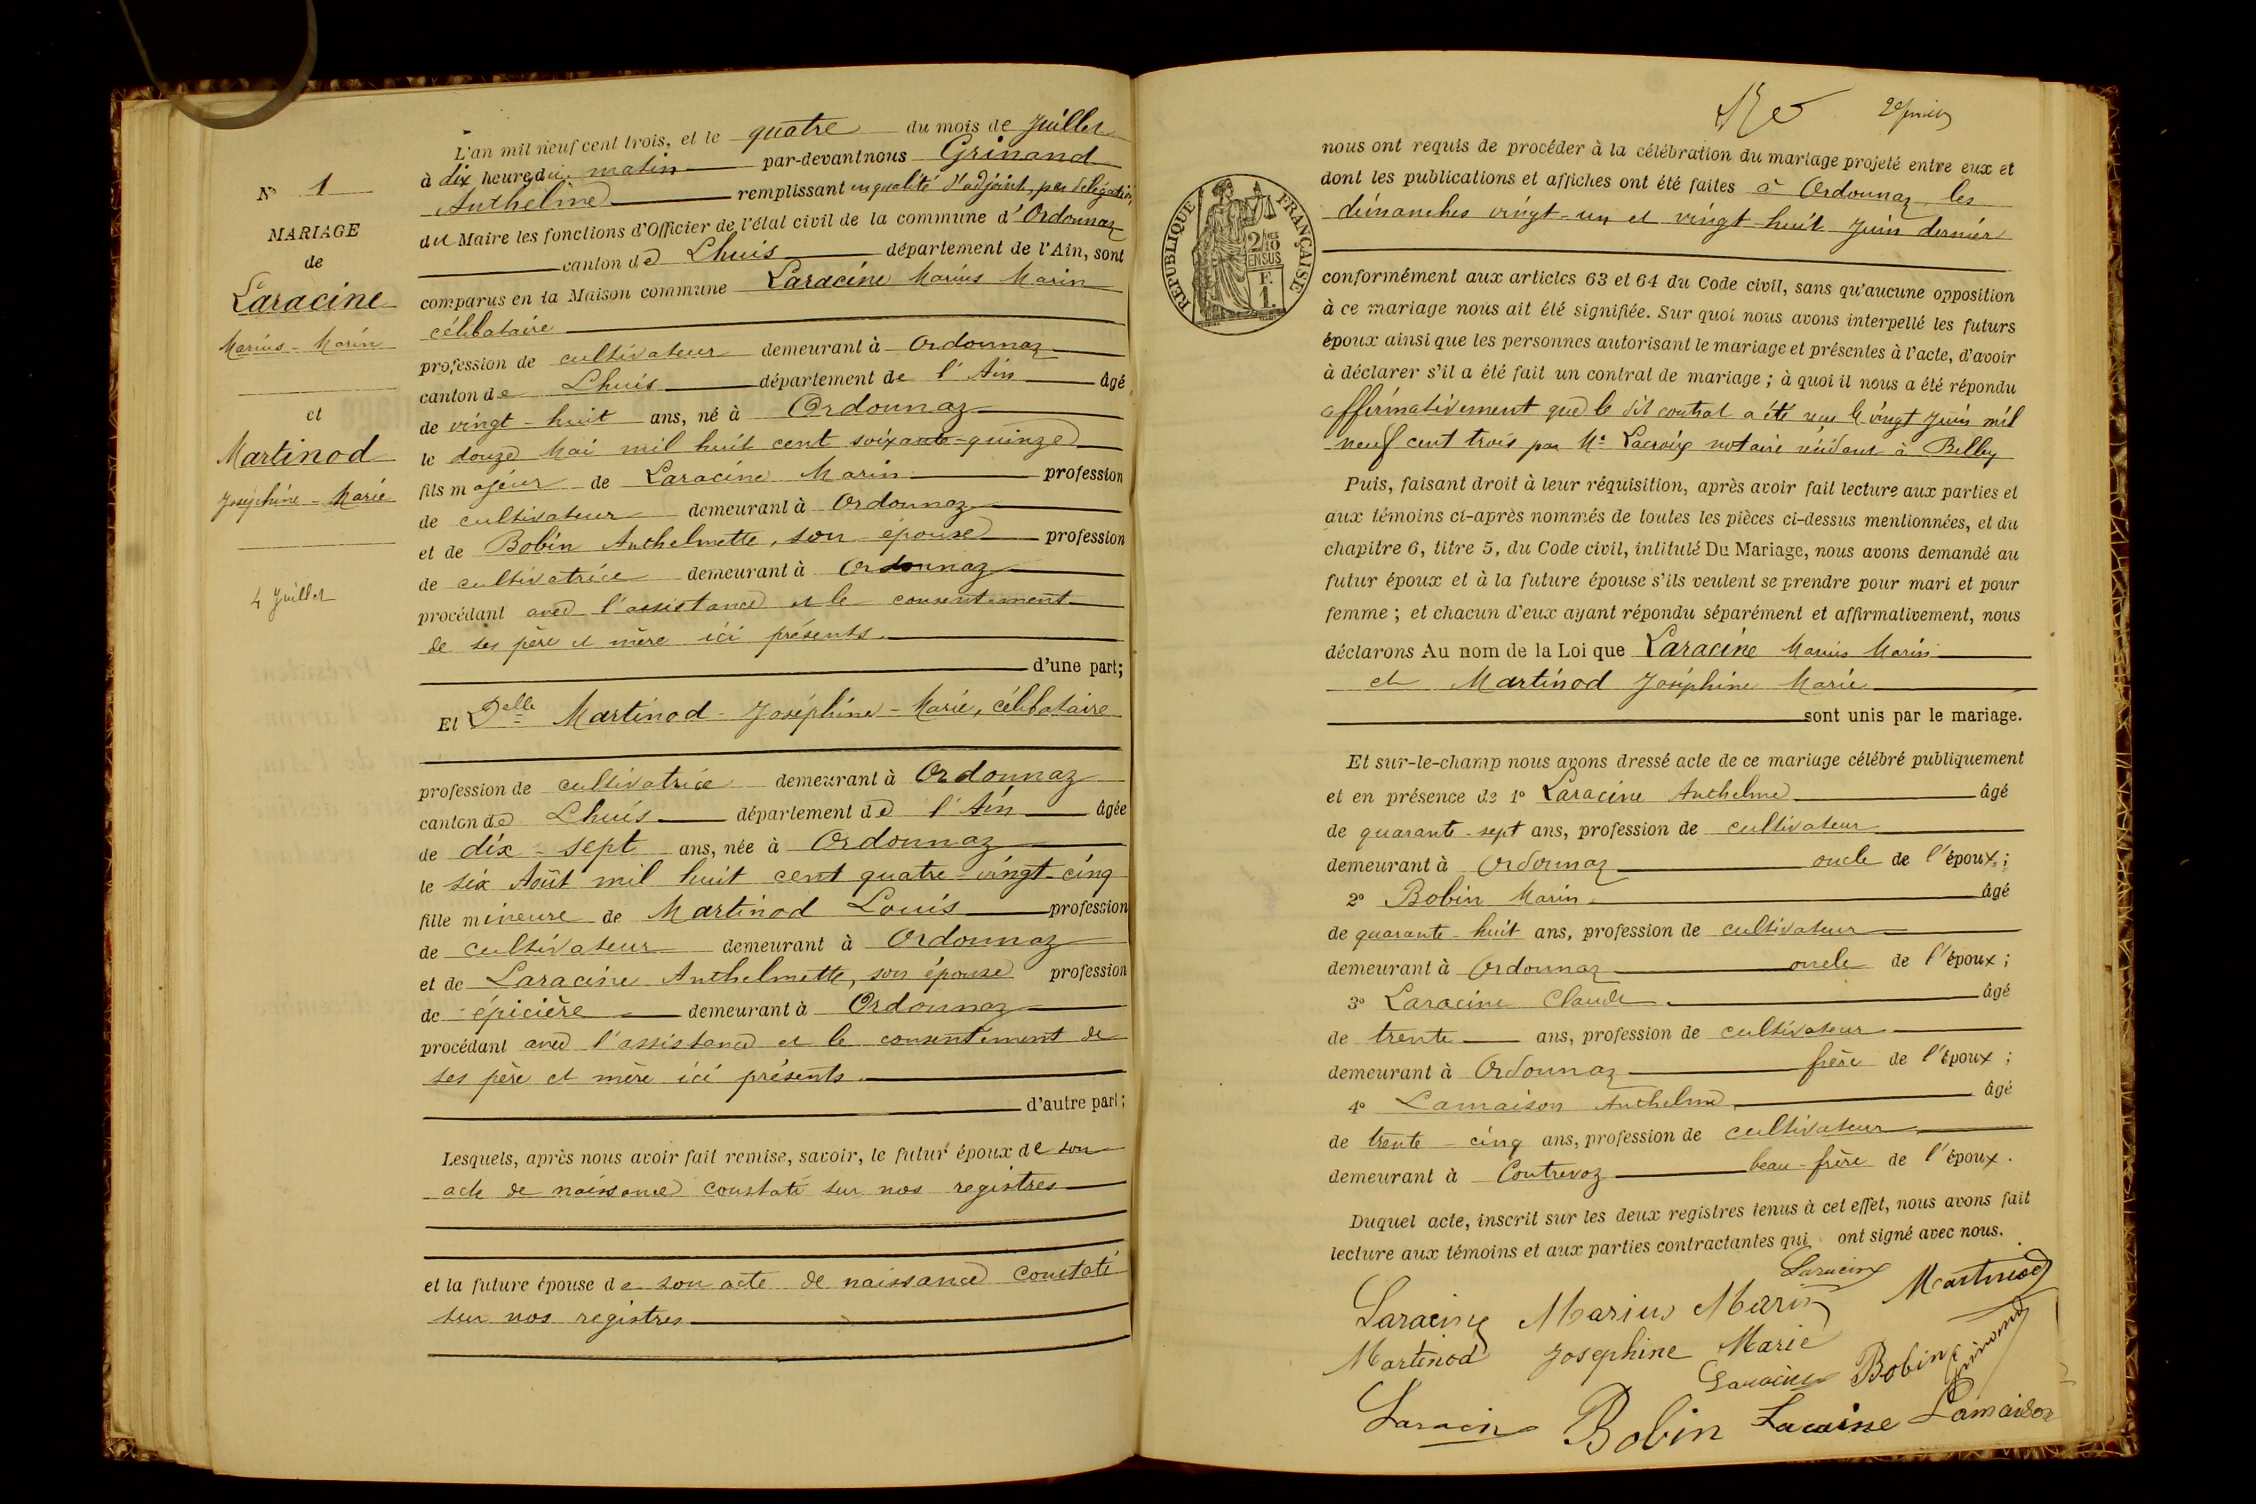 N° 1
MARIAGE
de
Laracine
Marius - Marin
et
Martinod
Joséphine - Marie
4 Juillet
L'an mil neuf cent trois, et le quatre du mois de Juillet
à dix heures du matin par-devant nous Grinand
Anthelme remplissant en qualité d'adjoint, par délégation
du Maire les fonctions d'Officier de l'état civil de la commune d'Ordonnaz
canton de Lhuis département de l'Ain, sont
comparus en la Maison commune Laracine Marius Marin
célibataire
profession de cultivateur demeurant à Ordonnaz
canton de Lhuis département de l'Ain âgé
de vingt-huit ans, né à Ordonnaz
le douze Mai mil huit cent soixante-quinze
fils majeur de Laracine Marin profession
de cultivateur demeurant à Ordonnaz
et de Bobin Anthelmette, son épouse profession
de cultivatrice demeurant à Ordonnaz
procédant avec l'assistance et le consentement
de ses père et mère ici présents.
d'une part;
Et Delle Martinod - Joséphine - Marie, célibataire
profession de cultivatrice demeurant à Ordonnaz
canton de Lhuis département de l'Ain âgée
de dix-sept ans, née à Ordonnaz
le six Août mil huit cent quatre-vingt-cinq
fille mineure de Martinod Louis profession
de cultivateur demeurant à Ordonnaz
et de Laracine Anthelmette, son épouse profession
de épicière demeurant à Ordonnaz
procédant avec l'assistance et le consentement de
ses père et mère ici présents.
d'autre part;
Lesquels, après nous avoir fait remise, savoir, le futur époux de son
acte de naissance constaté sur nos registres
et la future épouse de son acte de naissance constaté
sur nos registres
RÉPUBLIQUE FRANÇAISE
2/10 EN SUS
F.
1.
nous ont requis de procéder à la célébration du mariage projeté entre eux et
dont les publications et affiches ont été faites à Ordonnaz, les
dimanches vingt-un et vingt-huit Juin dernier
conformément aux articles 63 et 64 du Code civil, sans qu'aucune opposition
à ce mariage nous ait été signifiée. Sur quoi nous avons interpellé les futurs
époux ainsi que les personnes autorisant le mariage et présentes à l'acte, d'avoir
à déclarer s'il a été fait un contrat de mariage; à quoi il nous a été répondu
affirmativement que le dit contrat a été reçu le vingt Juin mil
neuf cent trois par Me Lacroix notaire résidant à Belley
Puis, faisant droit à leur réquisition, après avoir fait lecture aux parties et
aux témoins ci-après nommés de toutes les pièces ci-dessus mentionnées, et du
chapitre 6, titre 5, du Code civil, intitulé Du Mariage, nous avons demandé au
futur époux et à la future épouse s'ils veulent se prendre pour mari et pour
femme; et chacun d'eux ayant répondu séparément et affirmativement, nous
déclarons Au nom de la Loi que Laracine Marius Marin
et Martinod Joséphine Marie
sont unis par le mariage.
Et sur-le-champ nous avons dressé acte de ce mariage célébré publiquement
et en présence de 1° Laracine Anthelme âgé
de quarante-sept ans, profession de cultivateur
demeurant à Ordonnaz oncle de l'époux;
2° Bobin Marin âgé
de quarante-huit ans, profession de cultivateur
demeurant à Ordonnaz oncle de l'époux;
3° Laracine Claude âgé
de trente ans, profession de cultivateur
demeurant à Ordonnaz frère de l'époux;
4° Lamaison Anthelme âgé
de trente-cinq ans, profession de cultivateur
demeurant à Contrevoz beau-frère de l'époux.
Duquel acte, inscrit sur les deux registres tenus à cet effet, nous avons fait
lecture aux témoins et aux parties contractantes qui ont signé avec nous.
Laracine Martinod
Laracine Marius Marin
Martinod Josephine Marie
Laracine Bobin
Laracin Bobin Lacaine Lamaison